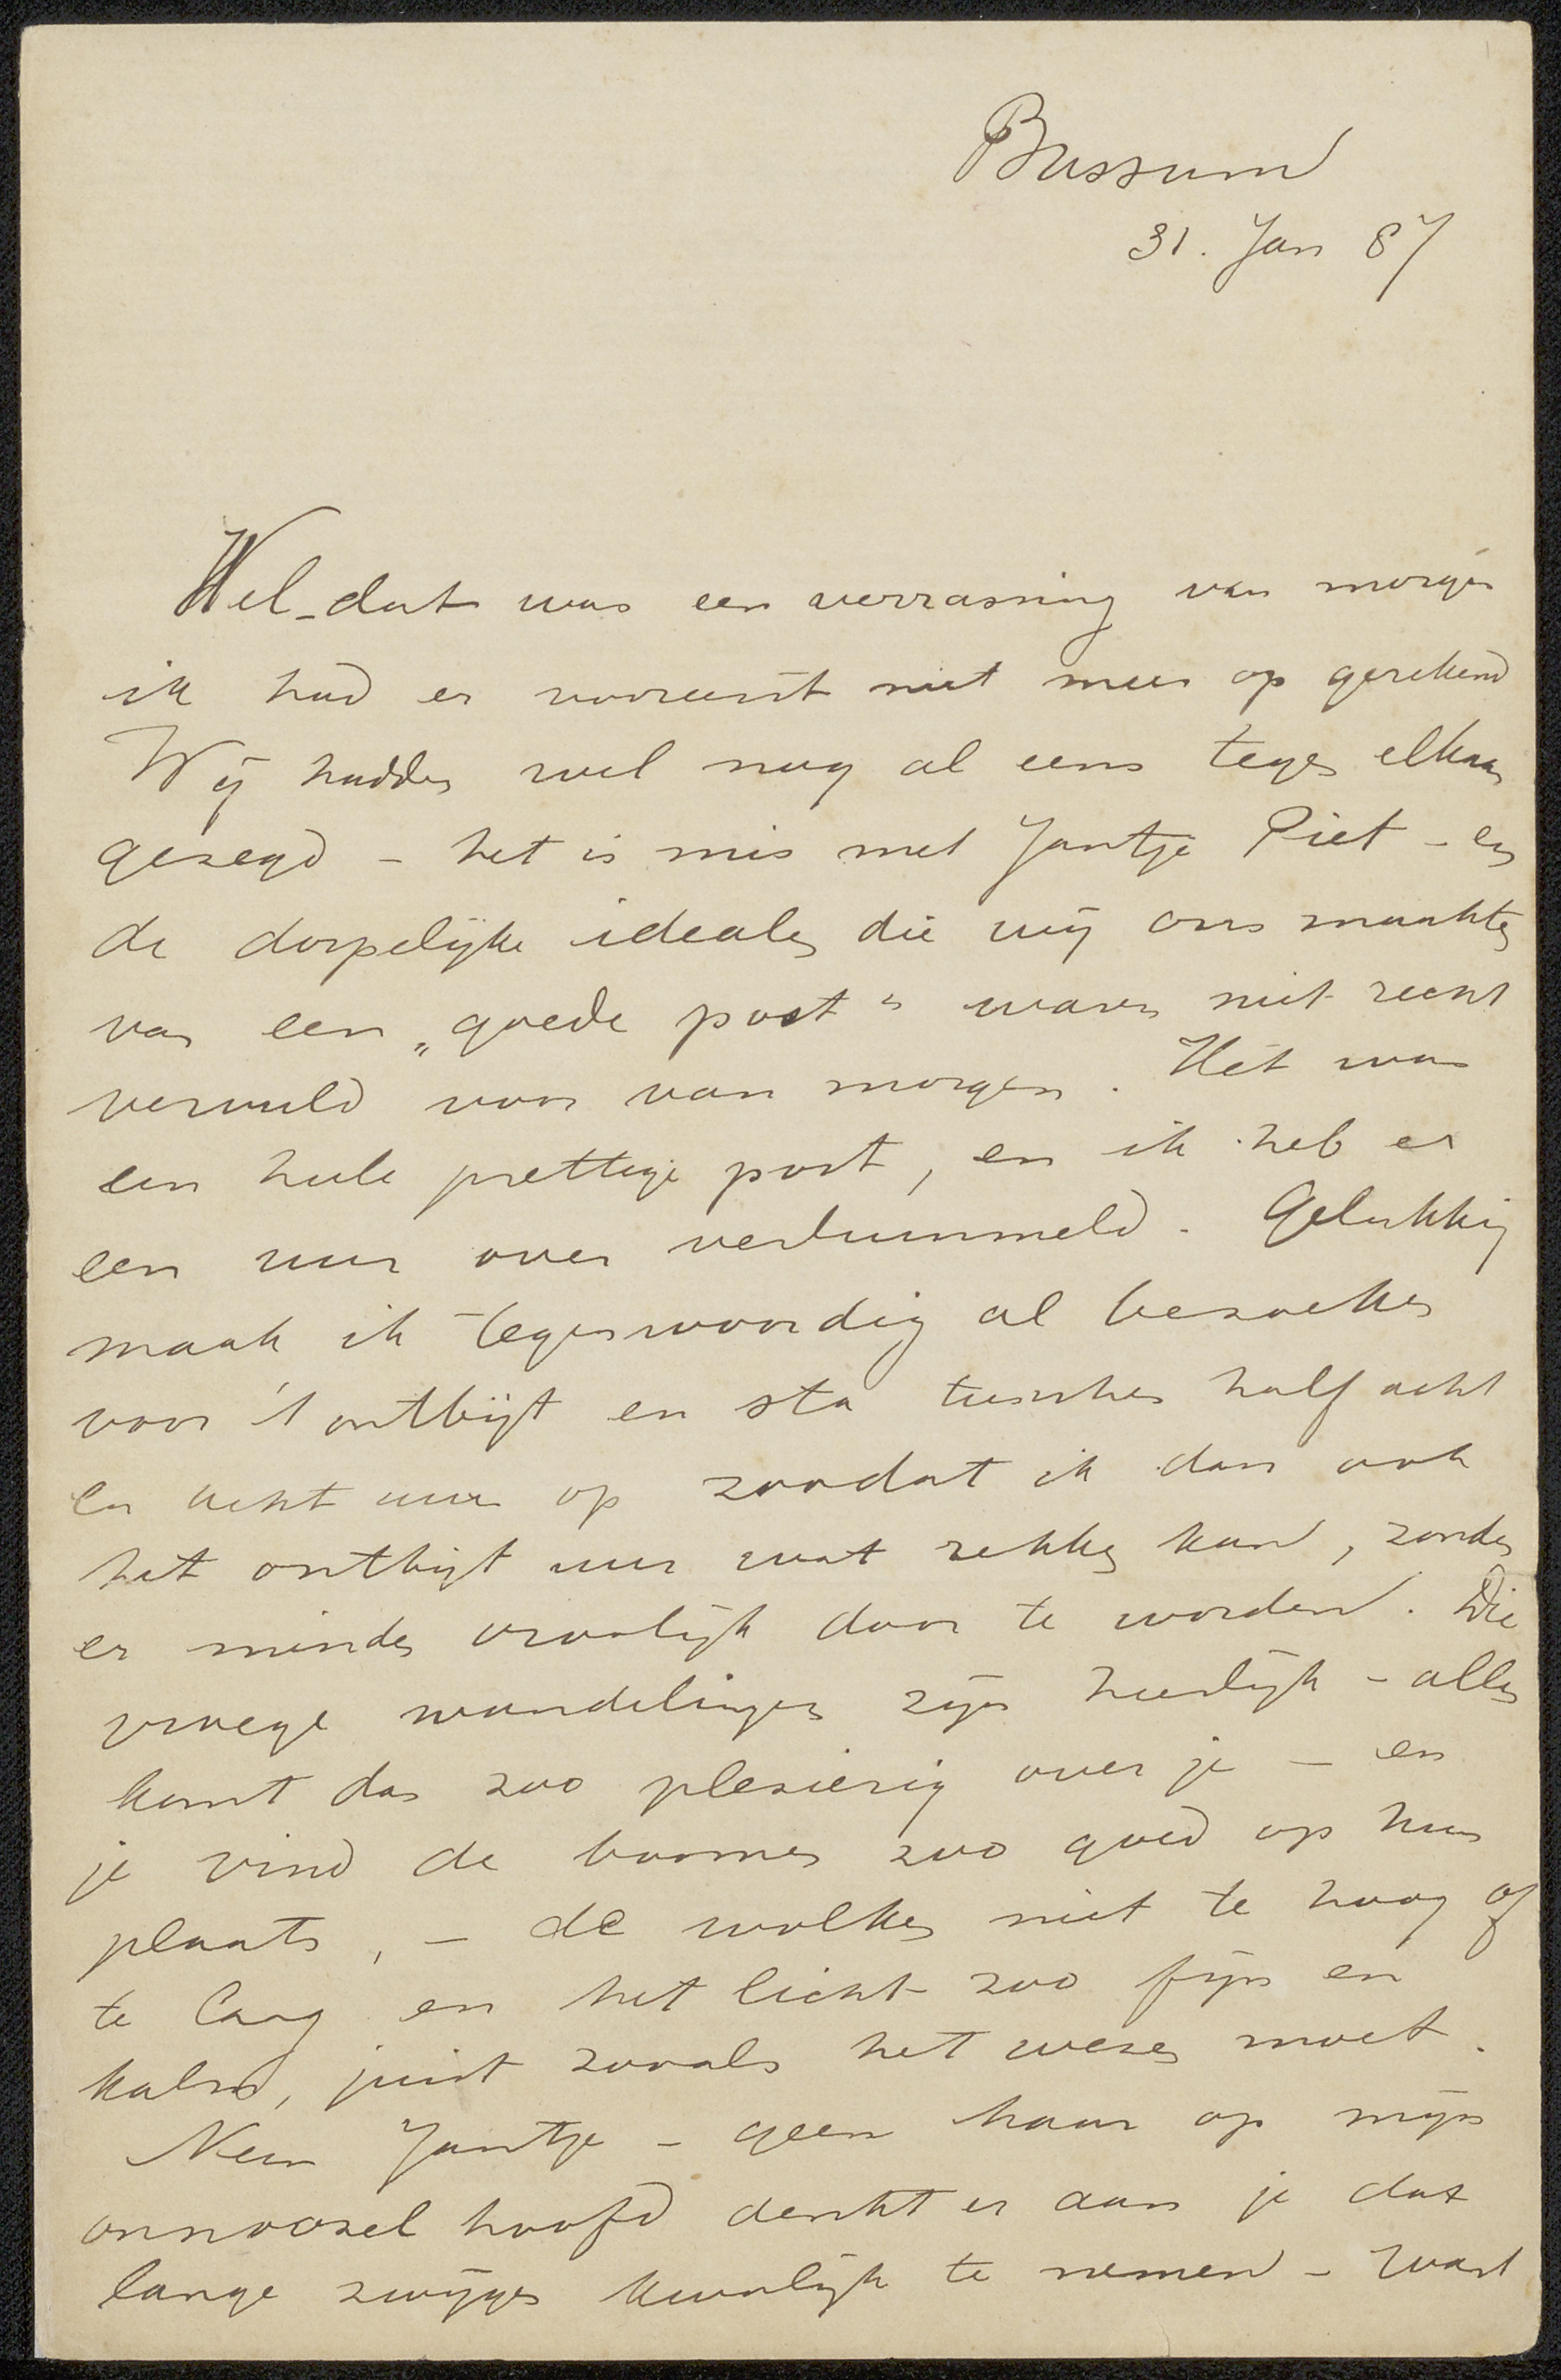 Bussum
31. Jan 87
Wel - dat was een verrassing van morgen
ik had er vooreerst niet meer op gerekend
Wij hadden wel nog al eens tegen elkaar
gezegd - het is mis met Jantje Piet - en
de dorpelijke idealen die wij ons maakten
van een „goede post" waren niet recht
vervuld voor van morgen. Het was
een heele prettige post, en ik heb er
een uur over verlummeld. Gelukkig
maak ik tegenwoordig al bezoeken
voor 't ontbijt en sta tusschen half acht
en acht uur op zoodat ik dan ook
het ontbijt uur wat rekken kan, zonder
er minder vroolijk door te worden. Die
vroege wandelingen zijn heerlijk - alles
komt dan zoo plesierig over je - en
je vind de boomen zoo goed op hun
plaats, - de wolken niet te hoog of
te laag en het licht zoo fijn en
kalm, juist zooals het wezen moet.
Neen Jantje - geen haar op mijn
onnoozel hoofd denkt er aan je dat
lange zwijgen kwalijk te nemen - want